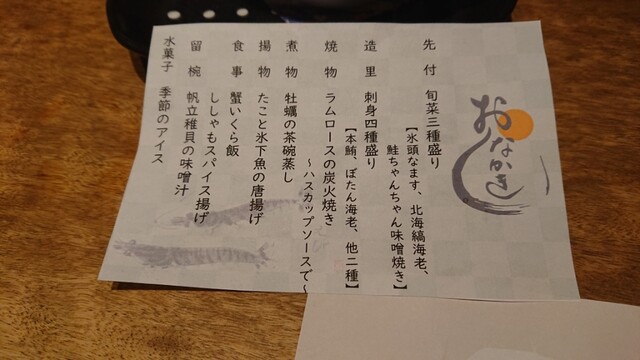 おなかき
先付 旬菜三種盛り
【氷頭なます、北海縞海老、
鮭ちゃんちゃん味噌焼き】
造里 刺身四種盛り
【本鮪、ぼたん海老、他二種】
焼物 ラムロースの炭火焼き
～ハスカップソースで～
煮物 牡蠣の茶碗蒸し
揚物 たこと氷下魚の唐揚げ
食事 蟹いくら飯
ししゃもスパイス揚げ
留椀 帆立稚貝の味噌汁
水菓子 季節のアイス